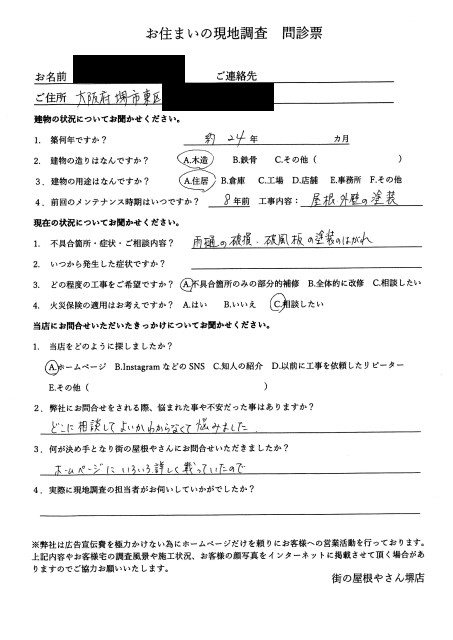 お住まいの現地調査　問診票
お名前　ご連絡先
ご住所　大阪府堺市東区
建物の状況についてお聞かせください。
1．築何年ですか？　約 24 年　カ月
2．建物の造りはなんですか？　A.木造　B.鉄骨　C.その他（　　　）
3．建物の用途はなんですか？　A.住居　B.倉庫　C.工場　D.店舗　E.事務所　F.その他
4．前回のメンテナンス時期はいつですか？　8 年前　工事内容：屋根・外壁の塗装
現在の状況についてお聞かせください。
1．不具合箇所・症状・ご相談内容？　雨樋の破損・破風板の塗装のはがれ
2．いつから発生した症状ですか？
3．どの程度の工事をご希望ですか？　A.不具合箇所のみの部分的補修　B.全体的に改修　C.相談したい
4．火災保険の適用はお考えですか？　A.はい　B.いいえ　C.相談したい
当店にお問合せいただいたきっかけについてお聞かせください。
1．当店をどのように探しましたか？
A.ホームページ　B.InstagramなどのSNS　C.知人の紹介　D.以前に工事を依頼したリピーター
E.その他（　　　）
2．弊社にお問合せをされる際、悩まれた事や不安だった事はありますか？
どこに相談してよいかわからなくて悩みました.
3．何が決め手となり街の屋根やさんにお問合せいただきましたか？
ホームページにいろいろ詳しく載っていたので
4．実際に現地調査の担当者がお伺いしていかがでしたか？
※弊社は広告宣伝費を極力かけない為にホームページだけを頼りにお客様への営業活動を行っております。
上記内容やお客様宅の調査風景や施工状況、お客様の顔写真をインターネットに掲載させて頂く場合があ
りますのでご協力お願いいたします。
街の屋根やさん堺店